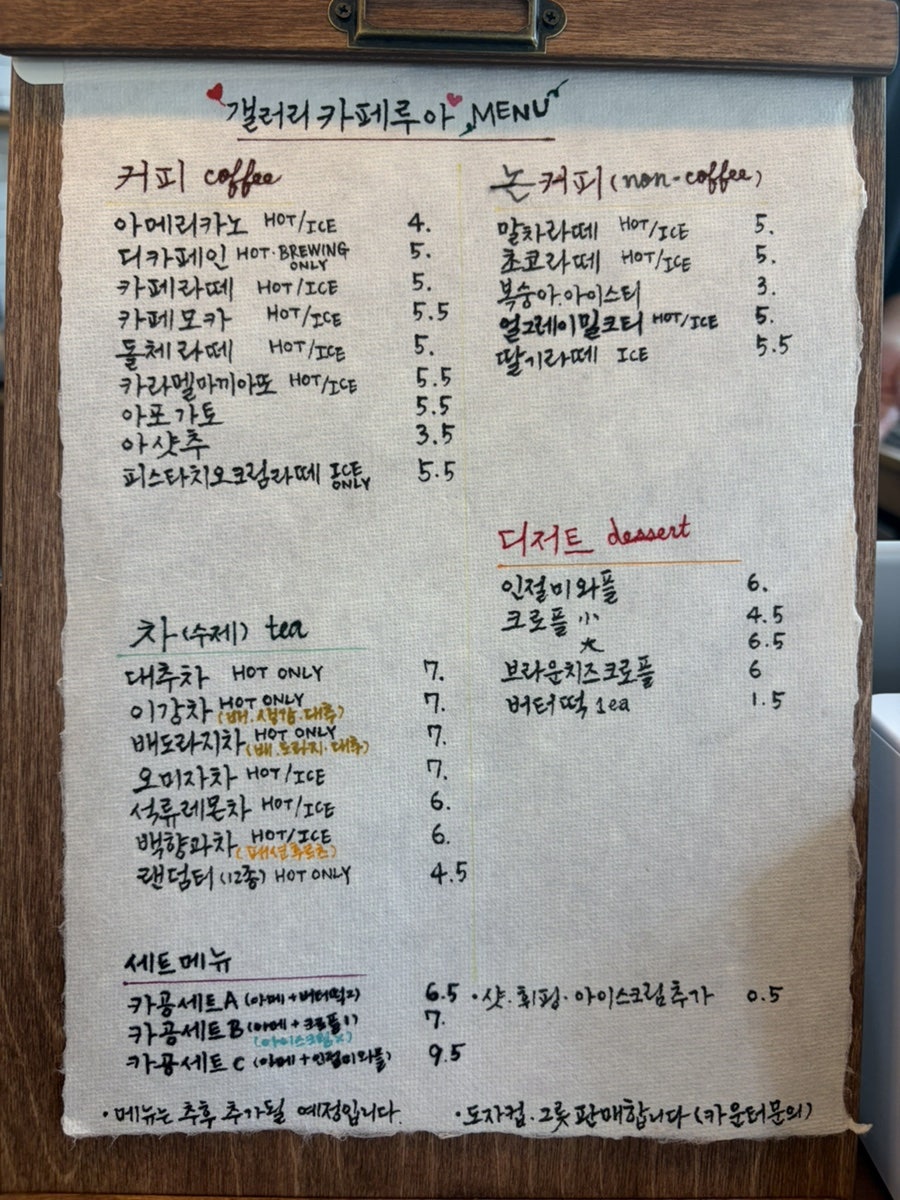 갤러리카페루아 MENU
커피 coffee
아메리카노 HOT/ICE 4.
디카페인 HOT·BREWING ONLY 5.
카페라떼 HOT/ICE 5.
카페모카 HOT/ICE 5.5
돌체라떼 HOT/ICE 5.
카라멜마끼아또 HOT/ICE 5.5
아포가토 5.5
아샷추 3.5
피스타치오크림라떼 ICE ONLY 5.5
논커피 (non-coffee)
말차라떼 HOT/ICE 5.
초코라떼 HOT/ICE 5.
복숭아.아이스티 3.
얼그레이밀크티 HOT/ICE 5.
딸기라떼 ICE 5.5
디저트 dessert
인절미와플 6.
크로플 小 4.5
大 6.5
브라운치즈크로플 6
버터떡 1ea 1.5
차 (수제) tea
대추차 HOT ONLY 7.
이강차 HOT ONLY 7.
(배.생강.대추)
배도라지차 HOT ONLY 7.
(배.도라지.대추)
오미자차 HOT/ICE 7.
석류레몬차 HOT/ICE 6.
백향과차 HOT/ICE 6.
(패션후르츠)
랜덤티 (12종) HOT ONLY 4.5
세트메뉴
카공세트A (아메+버터떡2) 6.5
카공세트B (아메+크로플1) 7.
(아이스크림X)
카공세트C (아메+인절미와플) 9.5
·샷.휘핑.아이스크림추가 0.5
·메뉴는 추후 추가될 예정입니다.
·도자컵.그릇판매합니다 (카운터문의)